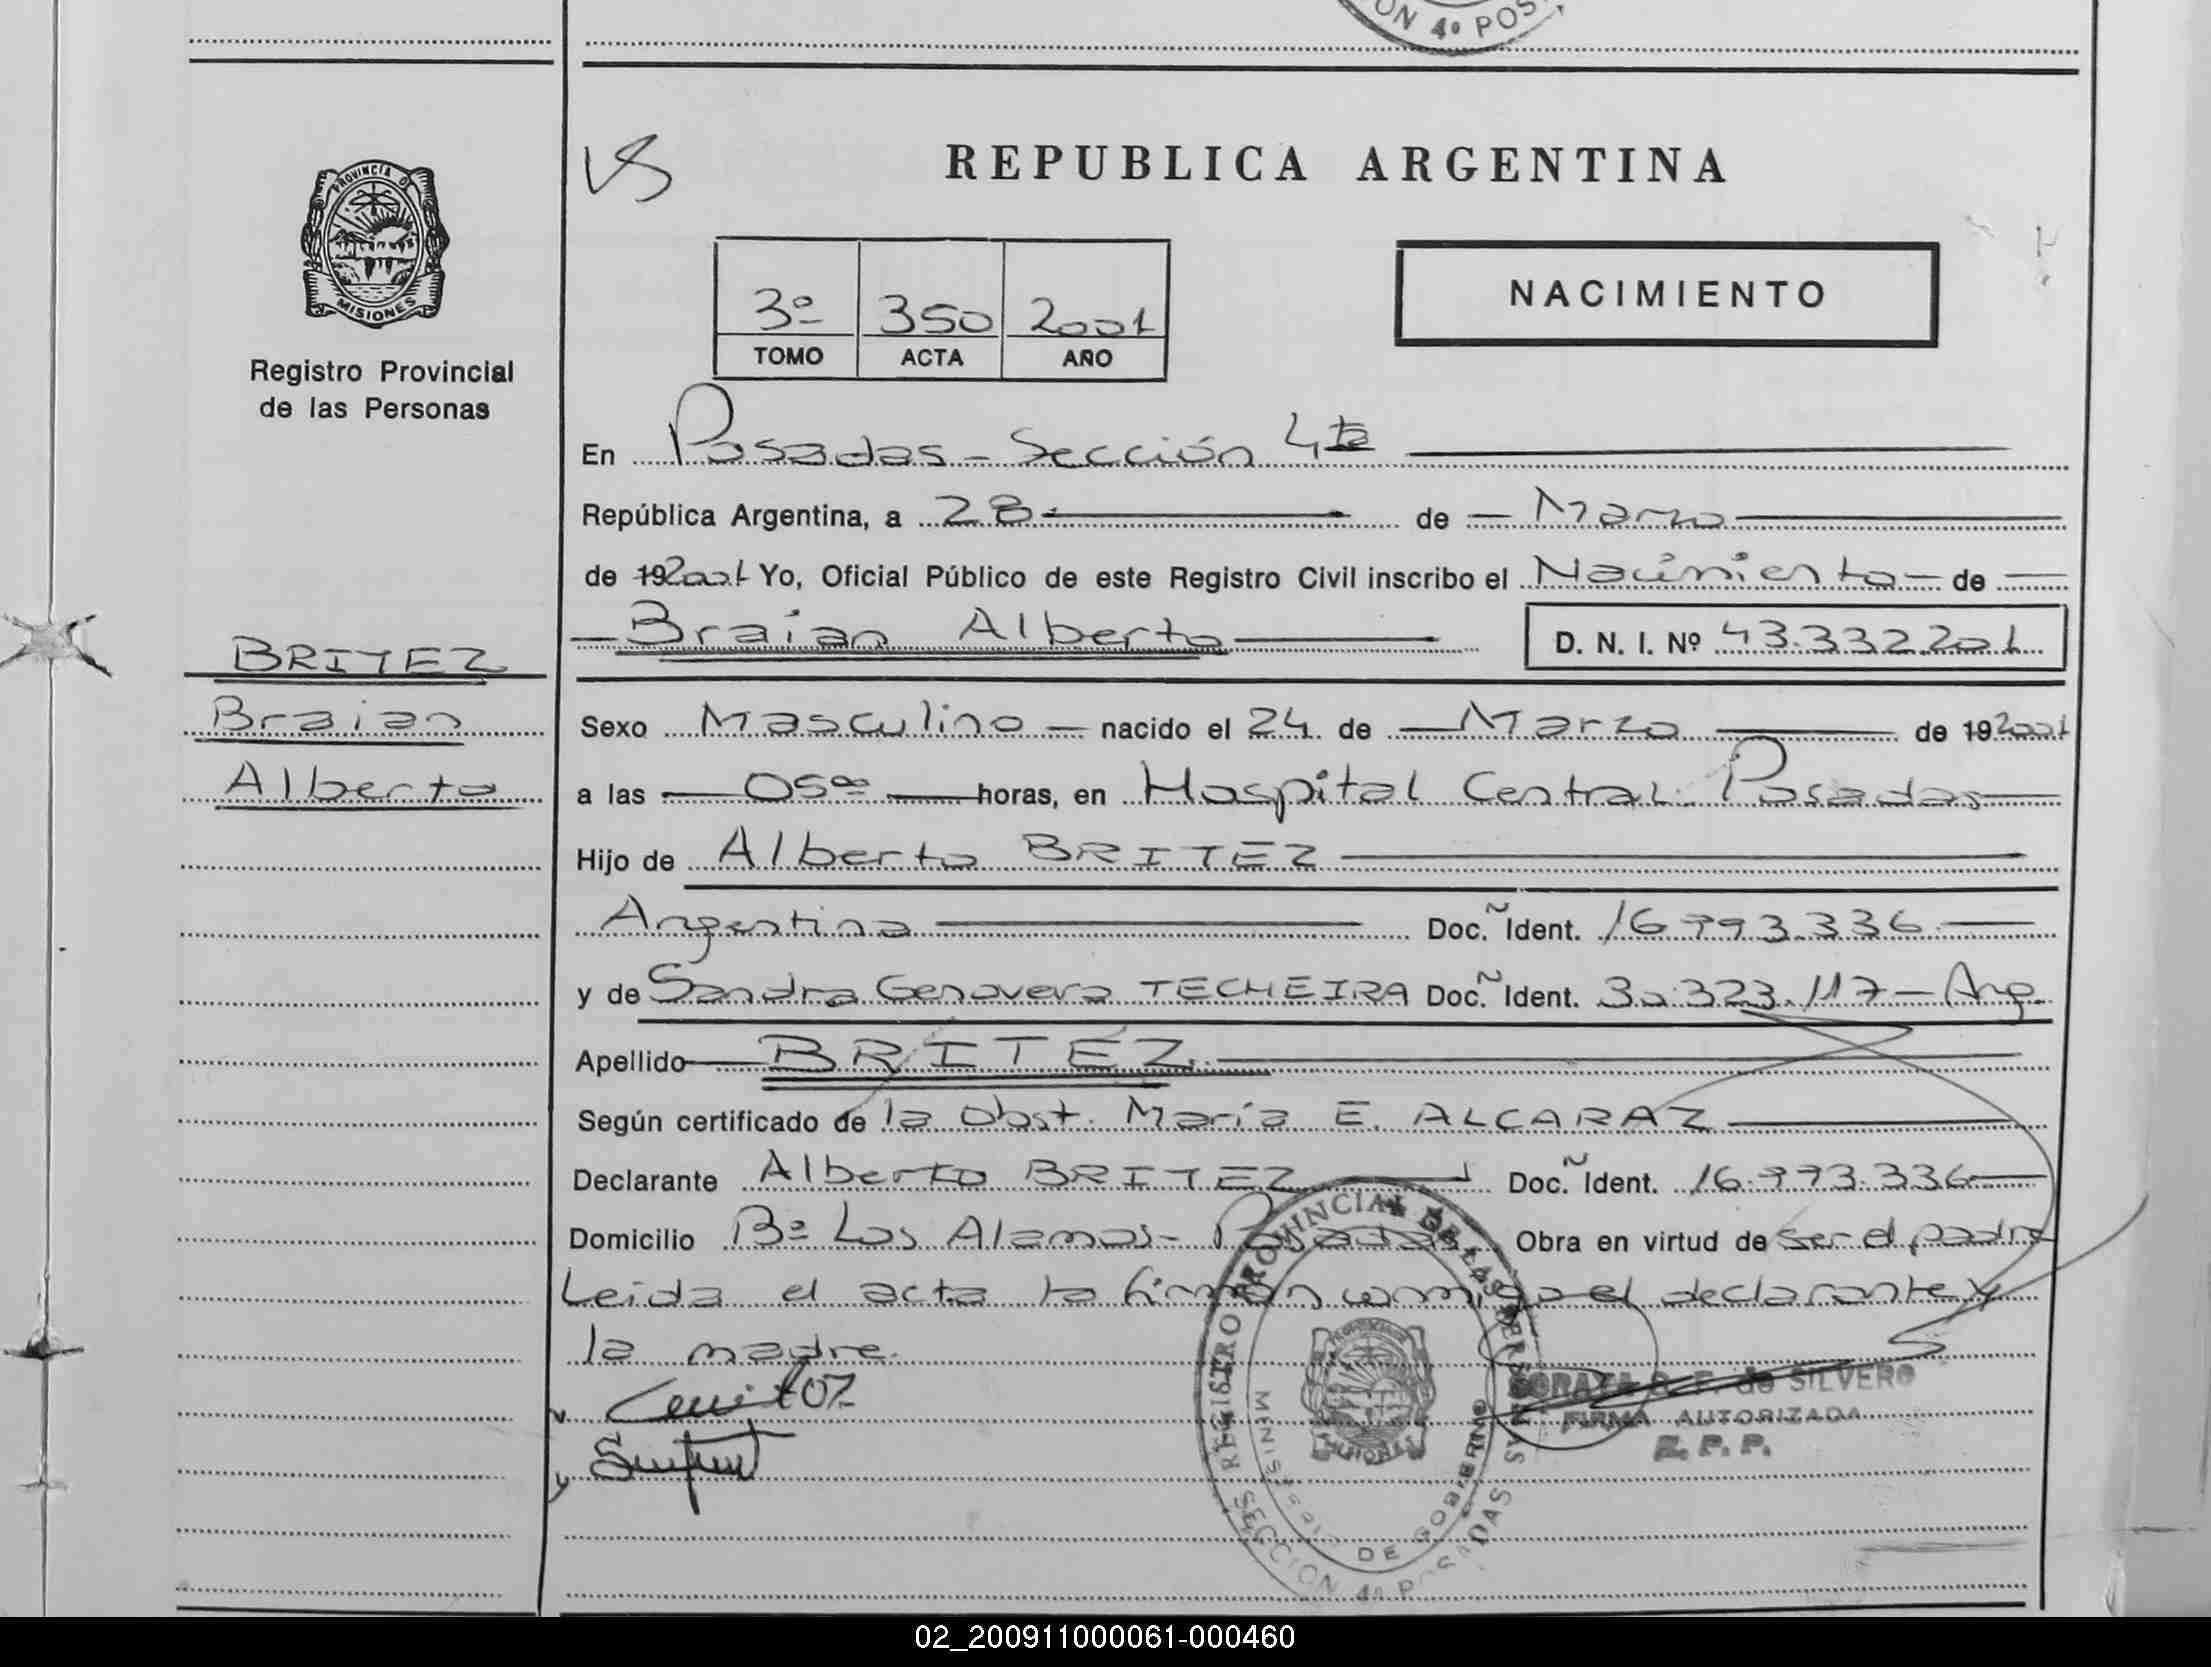 ON 4º POS
PROVINCIA D
MISIONES
Registro Provincial
de las Personas
BRITEZ
Braian
Alberto
REPUBLICA ARGENTINA
3º 350 2001
TOMO ACTA AÑO
NACIMIENTO
En Posadas - Sección 4ta
República Argentina, a 28 de Marzo
de 192001 Yo, Oficial Público de este Registro Civil inscribo el Nacimiento de
Braian Alberto D. N. I. Nº 43.332.201
Sexo Masculino nacido el 24 de Marzo de 192001
a las 05ºº horas, en Hospital Central Posadas
Hijo de Alberto BRITEZ
Argentina Doc. Ident.
y de Sandra Genovera TECHEIRA Doc. Ident. 30.323.117 - Arg.
Apellido BRITEZ
Según certificado de la Obst. María E. ALCARAZ
Declarante Alberto BRITEZ Doc. Ident.
Domicilio Bº Los Alamos - Posadas Obra en virtud de ser el padre
Leida el acta la firman conmigo el declarante y
la madre.
REGISTRO PROVINCIAL DE LAS PERSONAS
MINISTERIO DE GOBIERNO
SECCION 4ª POSADAS
SORAYA F. de SILVERO
FIRMA AUTORIZADA
R. P. P.
02_200911000061-000460